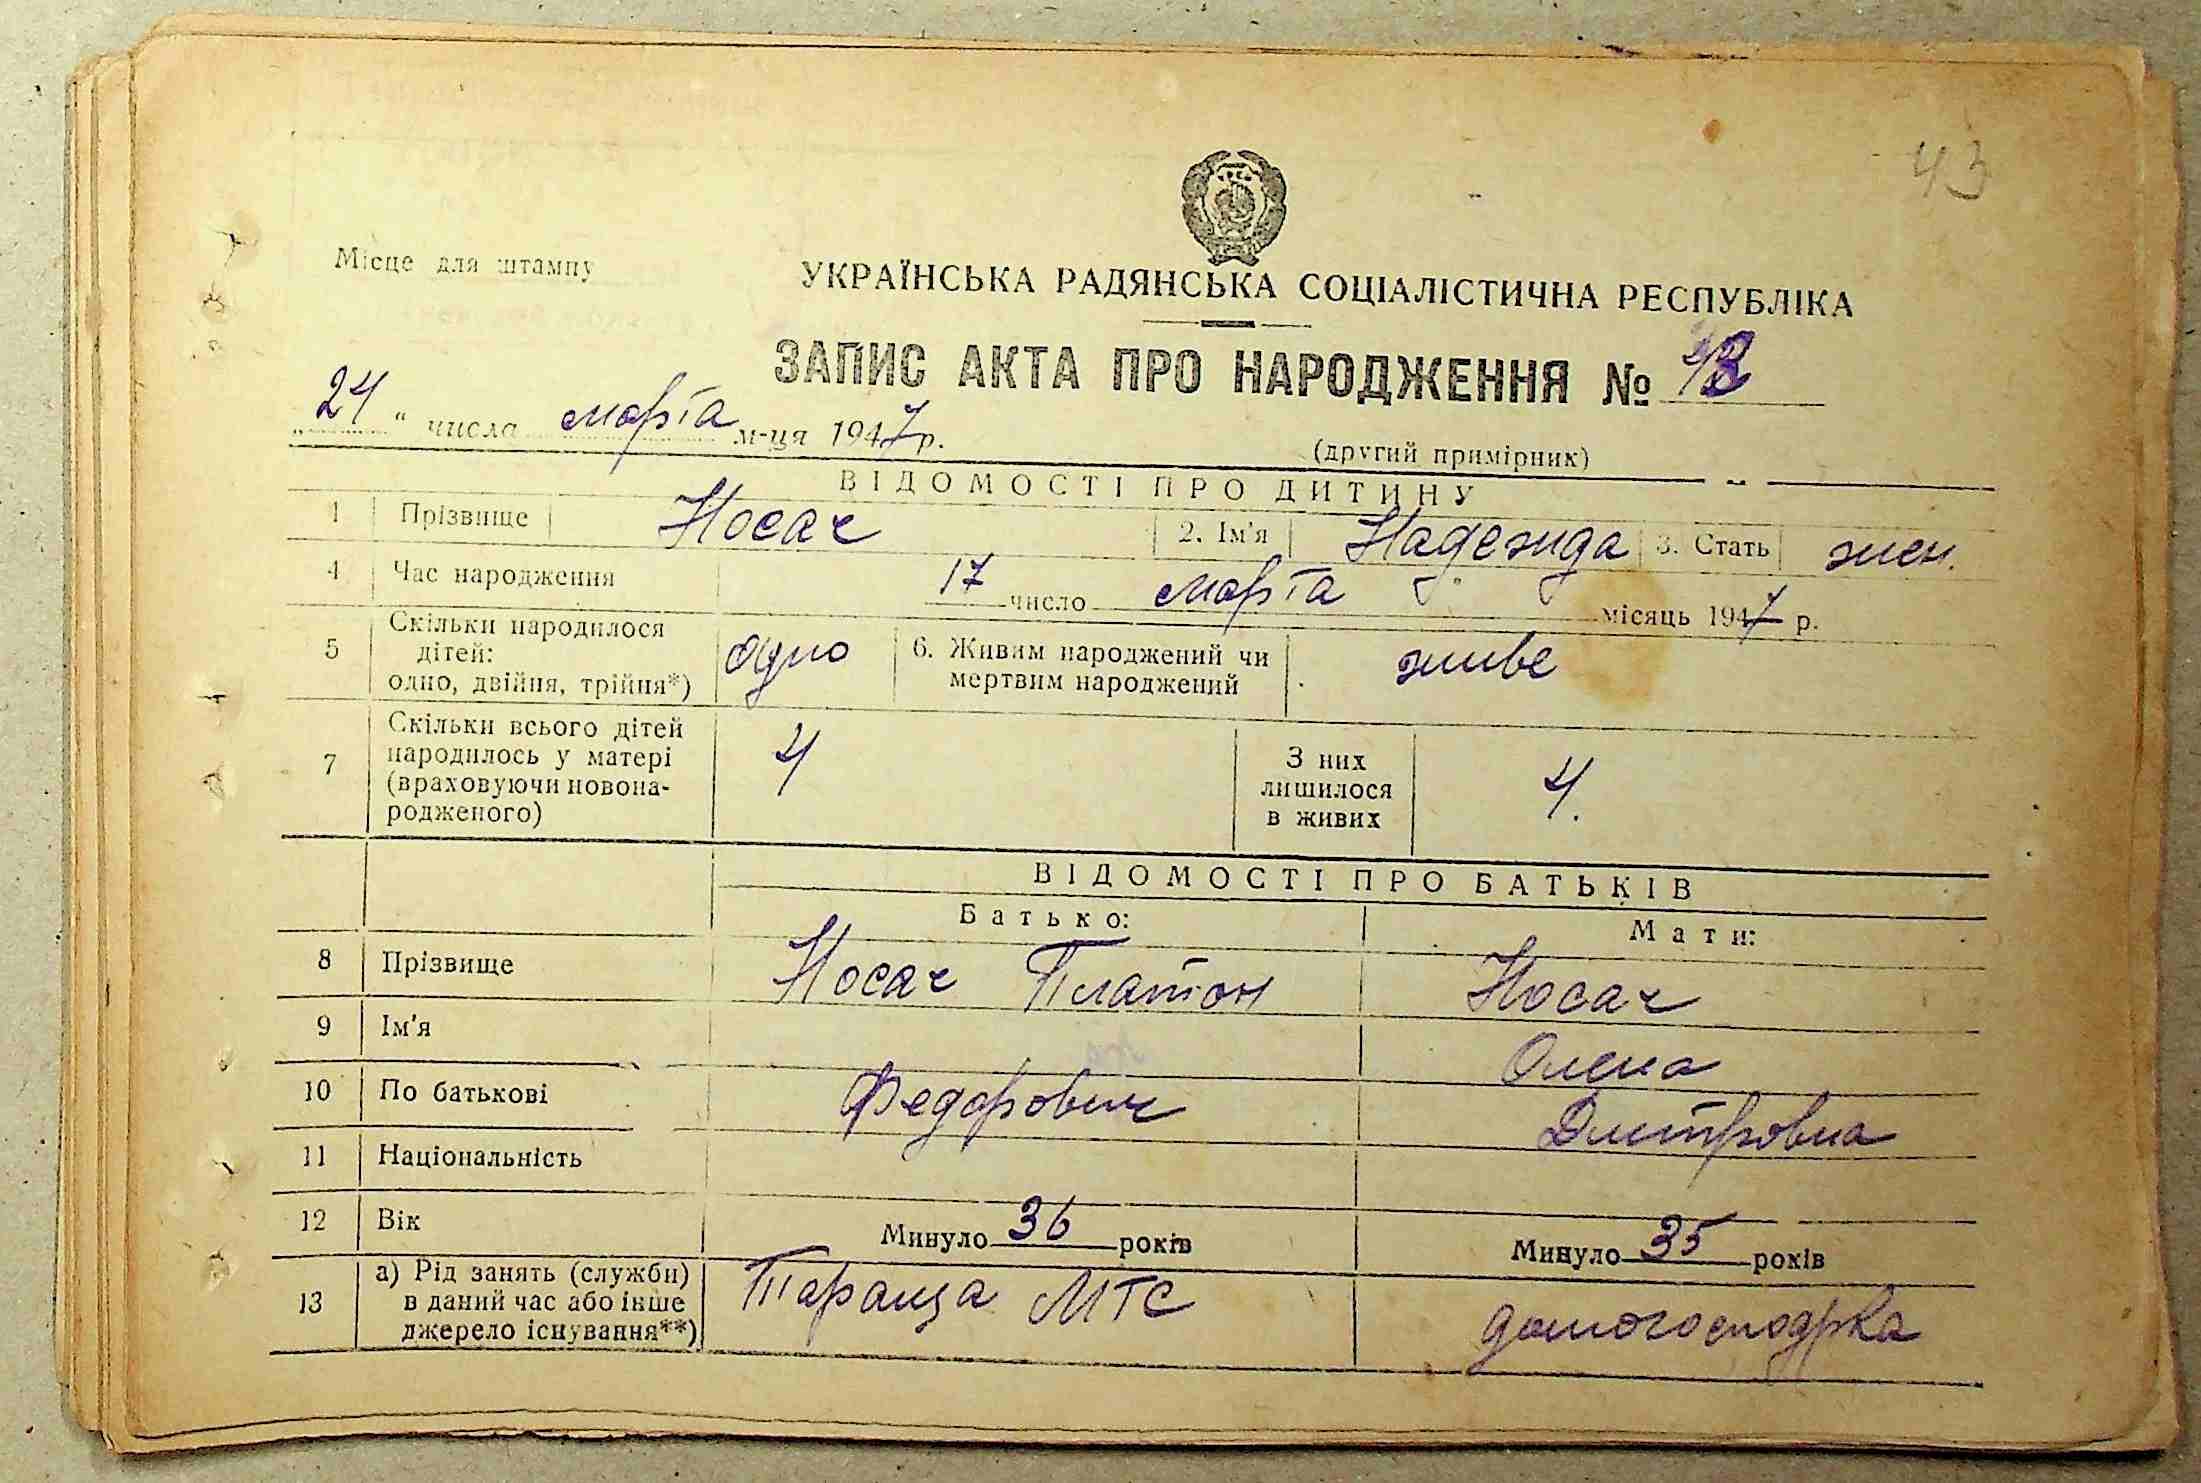 43
Місце для штампу
УКРАЇНСЬКА РАДЯНСЬКА СОЦІАЛІСТИЧНА РЕСПУБЛІКА
ЗАПИС АКТА ПРО НАРОДЖЕННЯ №
„24“ числа марта м-ця 1947 р.
(другий примірник)
ВІДОМОСТІ ПРО ДИТИНУ
1 Прізвище Носач 2. Ім'я Надежда 3. Стать жен.
4 Час народження 17 число марта місяць 1947 р.
5 Скільки народилося дітей: одно, двійня, трійня*) одно 6. Живим народжений чи мертвим народжений живе
7 Скільки всього дітей народилось у матері (враховуючи новонародженого) 4 З них лишилося в живих 4.
ВІДОМОСТІ ПРО БАТЬКІВ
Батько: Мати:
8 Прізвище Носач Платон Носач
9 Ім'я Олена
10 По батькові Федорович Дмитровна
11 Національність
12 Вік Минуло 36 років Минуло 35 років
13 а) Рід занять (служби) в даний час або інше джерело існування**) Тараща МТС домогосподрка